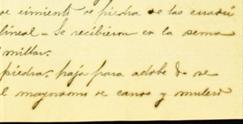 se cimiento de piedra de las cuadri
lineal — Se recibieron en la sema
millar.
piedra, paja para adobe de se
l mayordomo se canso y mulero